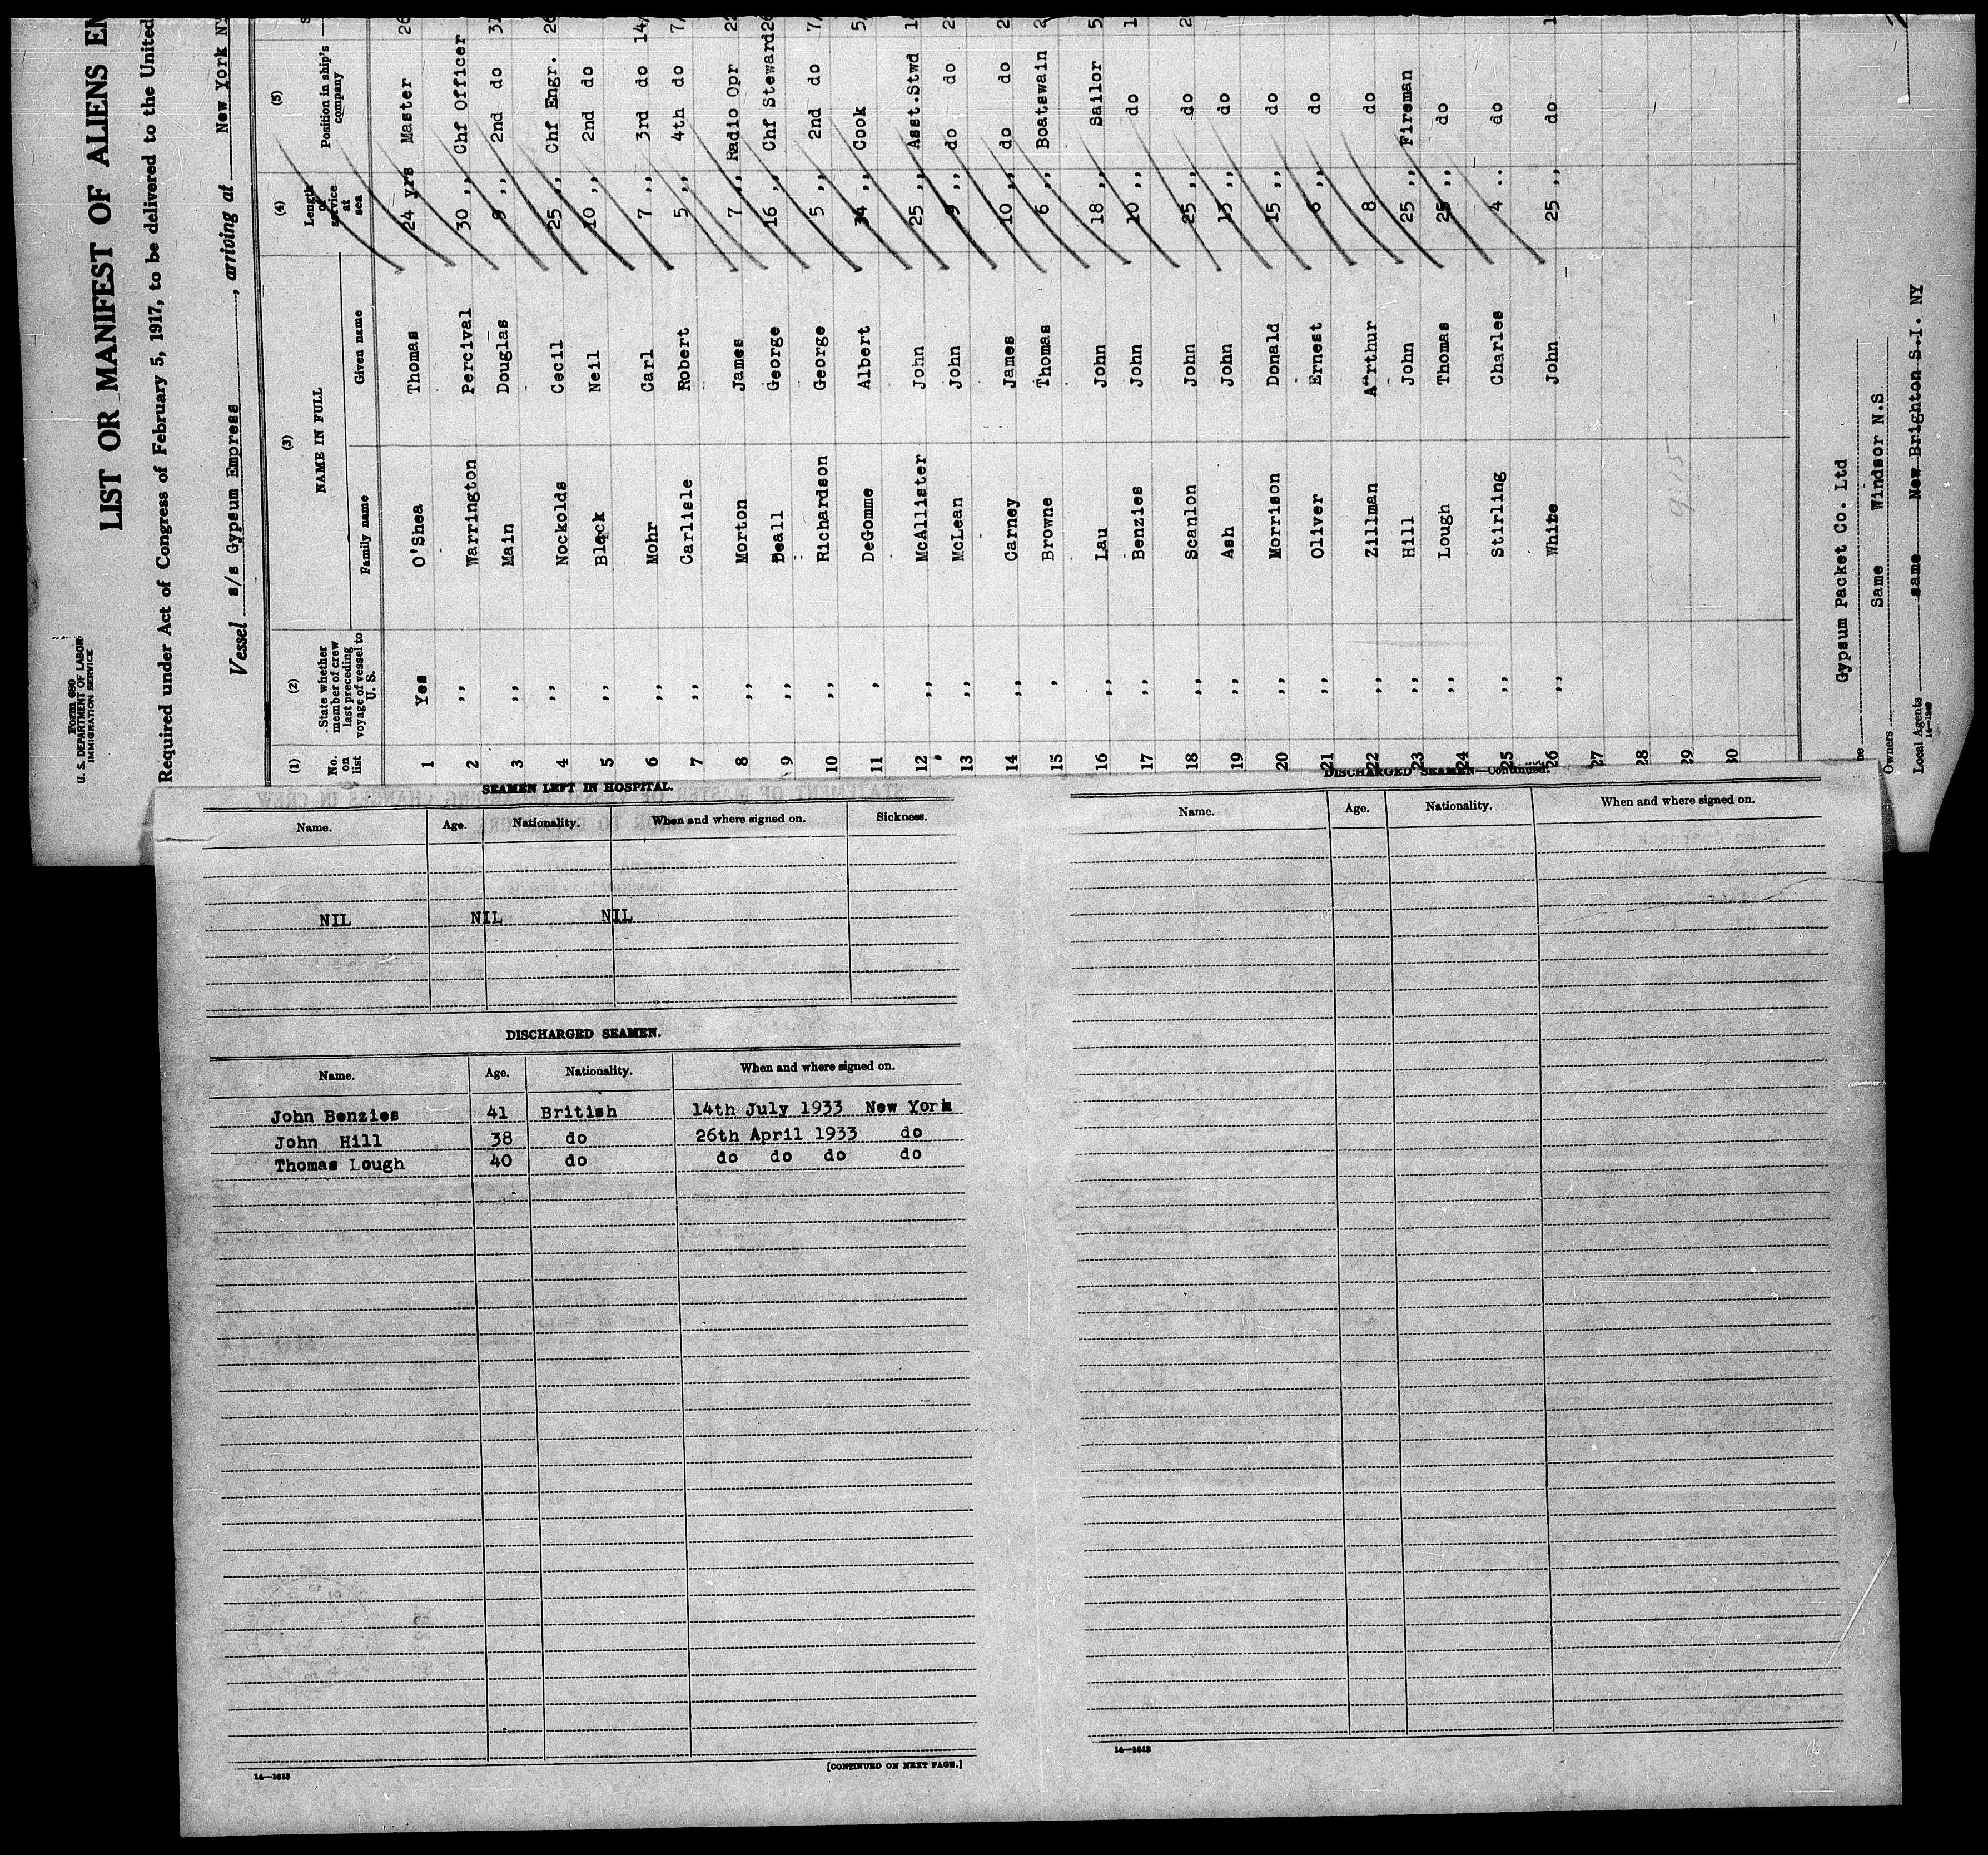 Form 680
U. S. DEPARTMENT OF LABOR
IMMIGRATION SERVICE
LIST OR MANIFEST OF ALIENS EM
Required under Act of Congress of February 5, 1917, to be delivered to the United
Vessel s/s Gypsum Empress, arriving at New York NY
(1) (2) (3) (4) (5)
No. on list State whether member of crew last preceding voyage of vessel to U. S. NAME IN FULL Length of service at sea Position in ship's company
Family name Given name
1 Yes O'Shea Thomas 24 yrs Master 26
2 ,, Warrington Percival 30 ,, Chf Officer
3 ,, Main Douglas 9 ,, 2nd do 31
4 ,, Nockolds Cecil 25 ,, Chf Engr. 26
5 ,, Black Neil 10 ,, 2nd do
6 ,, Mohr Carl 7 ,, 3rd do 14/
7 ,, Carlisle Robert 5 ,, 4th do 7/
8 ,, Morton James 7 ,, Radio Opr 22
9 ,, Deall George 16 ,, Chf Steward 26
10 ,, Richardson George 5 ,, 2nd do 7/
11 , DeGomme Albert 34 ,, Cook 5/
12 ,, McAllister John 25 ,, Asst.Stwd 1
13 ,, McLean John 9 ,, do do 2
14 ,, Carney James 10 ,, do do 2
15 , Browne Thomas 6 ,, Boatswain 2
16 ,, Lau John 18 ,, Sailor 5
17 ,, Benzies John 10 ,, do 1
18 ,, Scanlon John 25 ,, do 2
19 ,, Ash John 13 ,, do
20 ,, Morrison Donald 15 ,, do
21 ,, Oliver Ernest 6 ,, do
22 ,, Zillman A"rthur 8 do
23 ,, Hill John 25 ,, Fireman
24 ,, Lough Thomas 25 ,, do
25 ,, Stirling Charles 4 .. do
26 ,, White John 25 ,, do 1
27
28
29
30
Gypsum Packet Co. Ltd
Owners Same Windsor N.S
Local Agents same New Brighton S.I. NY
14—1240
SEAMEN LEFT IN HOSPITAL.
Name. Age. Nationality. When and where signed on. Sickness.
NIL NIL NIL
DISCHARGED SEAMEN.
Name. Age. Nationality. When and where signed on.
John Benzies 41 British 14th July 1933 New York
John Hill 38 do 26th April 1933 do
Thomas Lough 40 do do do do do
14—1613
[CONTINUED ON NEXT PAGE.]
DISCHARGED SEAMEN—Continued.
Name. Age. Nationality. When and where signed on.
14—1613